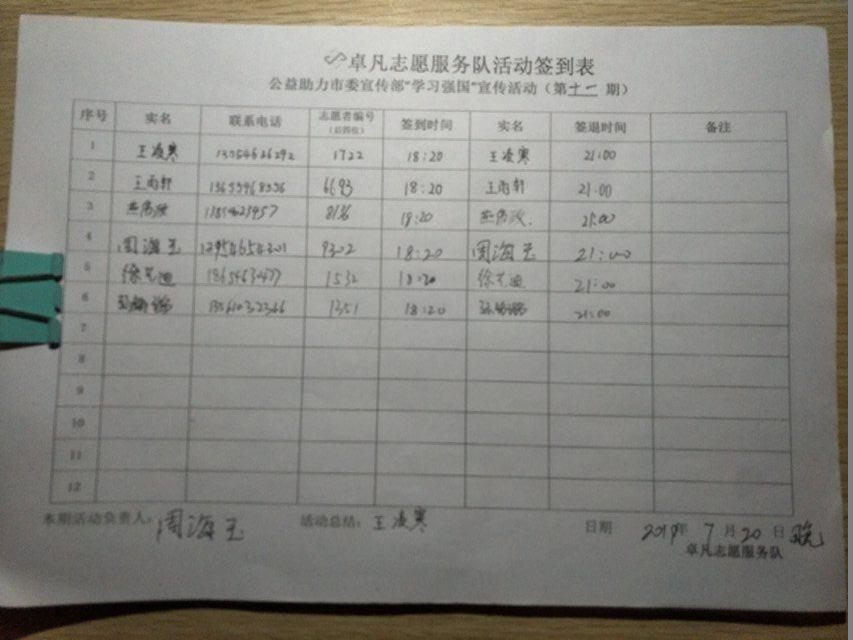 卓凡志愿服务队活动签到表
公益助力市委宣传部"学习强国"宣传活动(第十一期)
序号 实名 联系电话 志愿者编号(后四位) 签到时间 实名 签退时间 备注
1 王凌寒 1722 18:20 王凌寒 21:00
2 王雨轩 6693 18:20 王雨轩 21:00
3 8136 18:20 21:00
4 周海玉 9302 18:20 周海玉 21:00
5 徐艺迪 1532 18:20 徐艺迪 21:00
6 1351 18:20 21:00
7
8
9
10
11
12
本期活动负责人: 周海玉 活动总结: 王凌寒 日期 2019年 7月20日 晚
卓凡志愿服务队